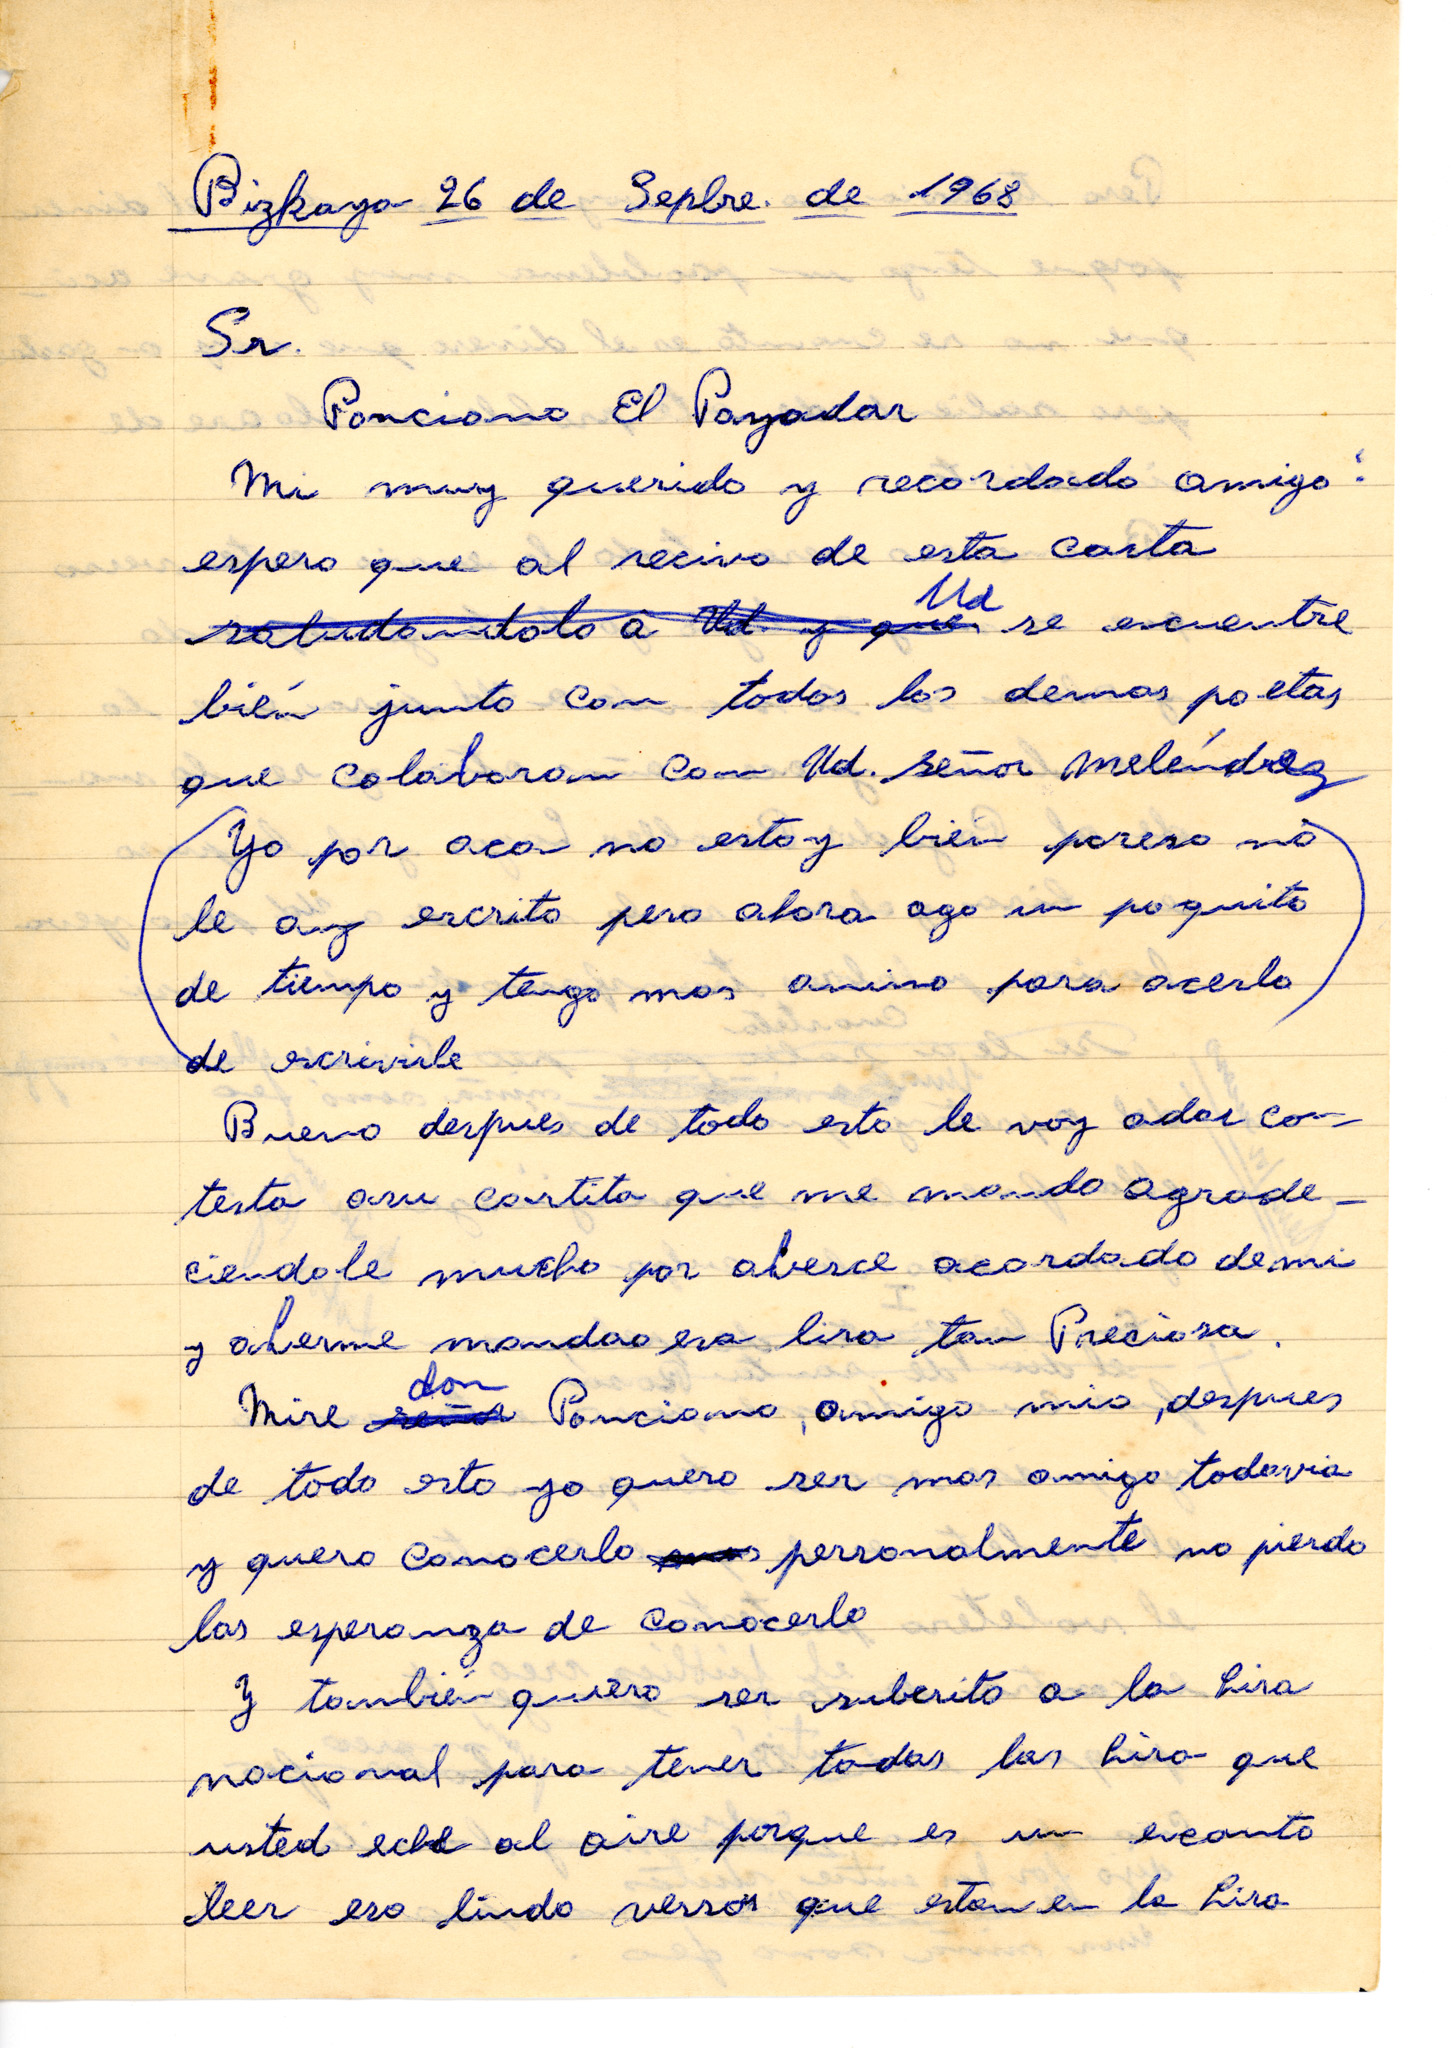 Bizkaya 26 de Sepbre. de 1968
Sr.
Ponciano El Payador
Mi muy querido y recordado amigo:
espero que al recivo de esta carta
saludandolo a Ud. y que Ud se encuentre
bién junto con todos los demas poetas
que colaboran con Ud. señor Meléndez
Yo por aca no estoy bién poreso nó
le ay escrito pero ahora ago un poquito
de tiempo y tengo mas animo para acerlo
de escrivirle
Bueno despues de todo esto le voy adar con-
testa asu cartita que me mando agrade-
ciendole mucho por aberce acordado de mi
y aberme mandao esa lira tan Preciosa.
Mire señor don Ponciano, amigo mio, despues
de todo esto yo quero ser mas amigo todavia
y quero conocerlo personalmente no pierdo
las esperanza de conocerlo
Y también quiero ser subcrito a la Lira
nacional para tener todas las Lira que
usted eche al aire porque es un encanto
leer eso lindo versos que estan en la Lira